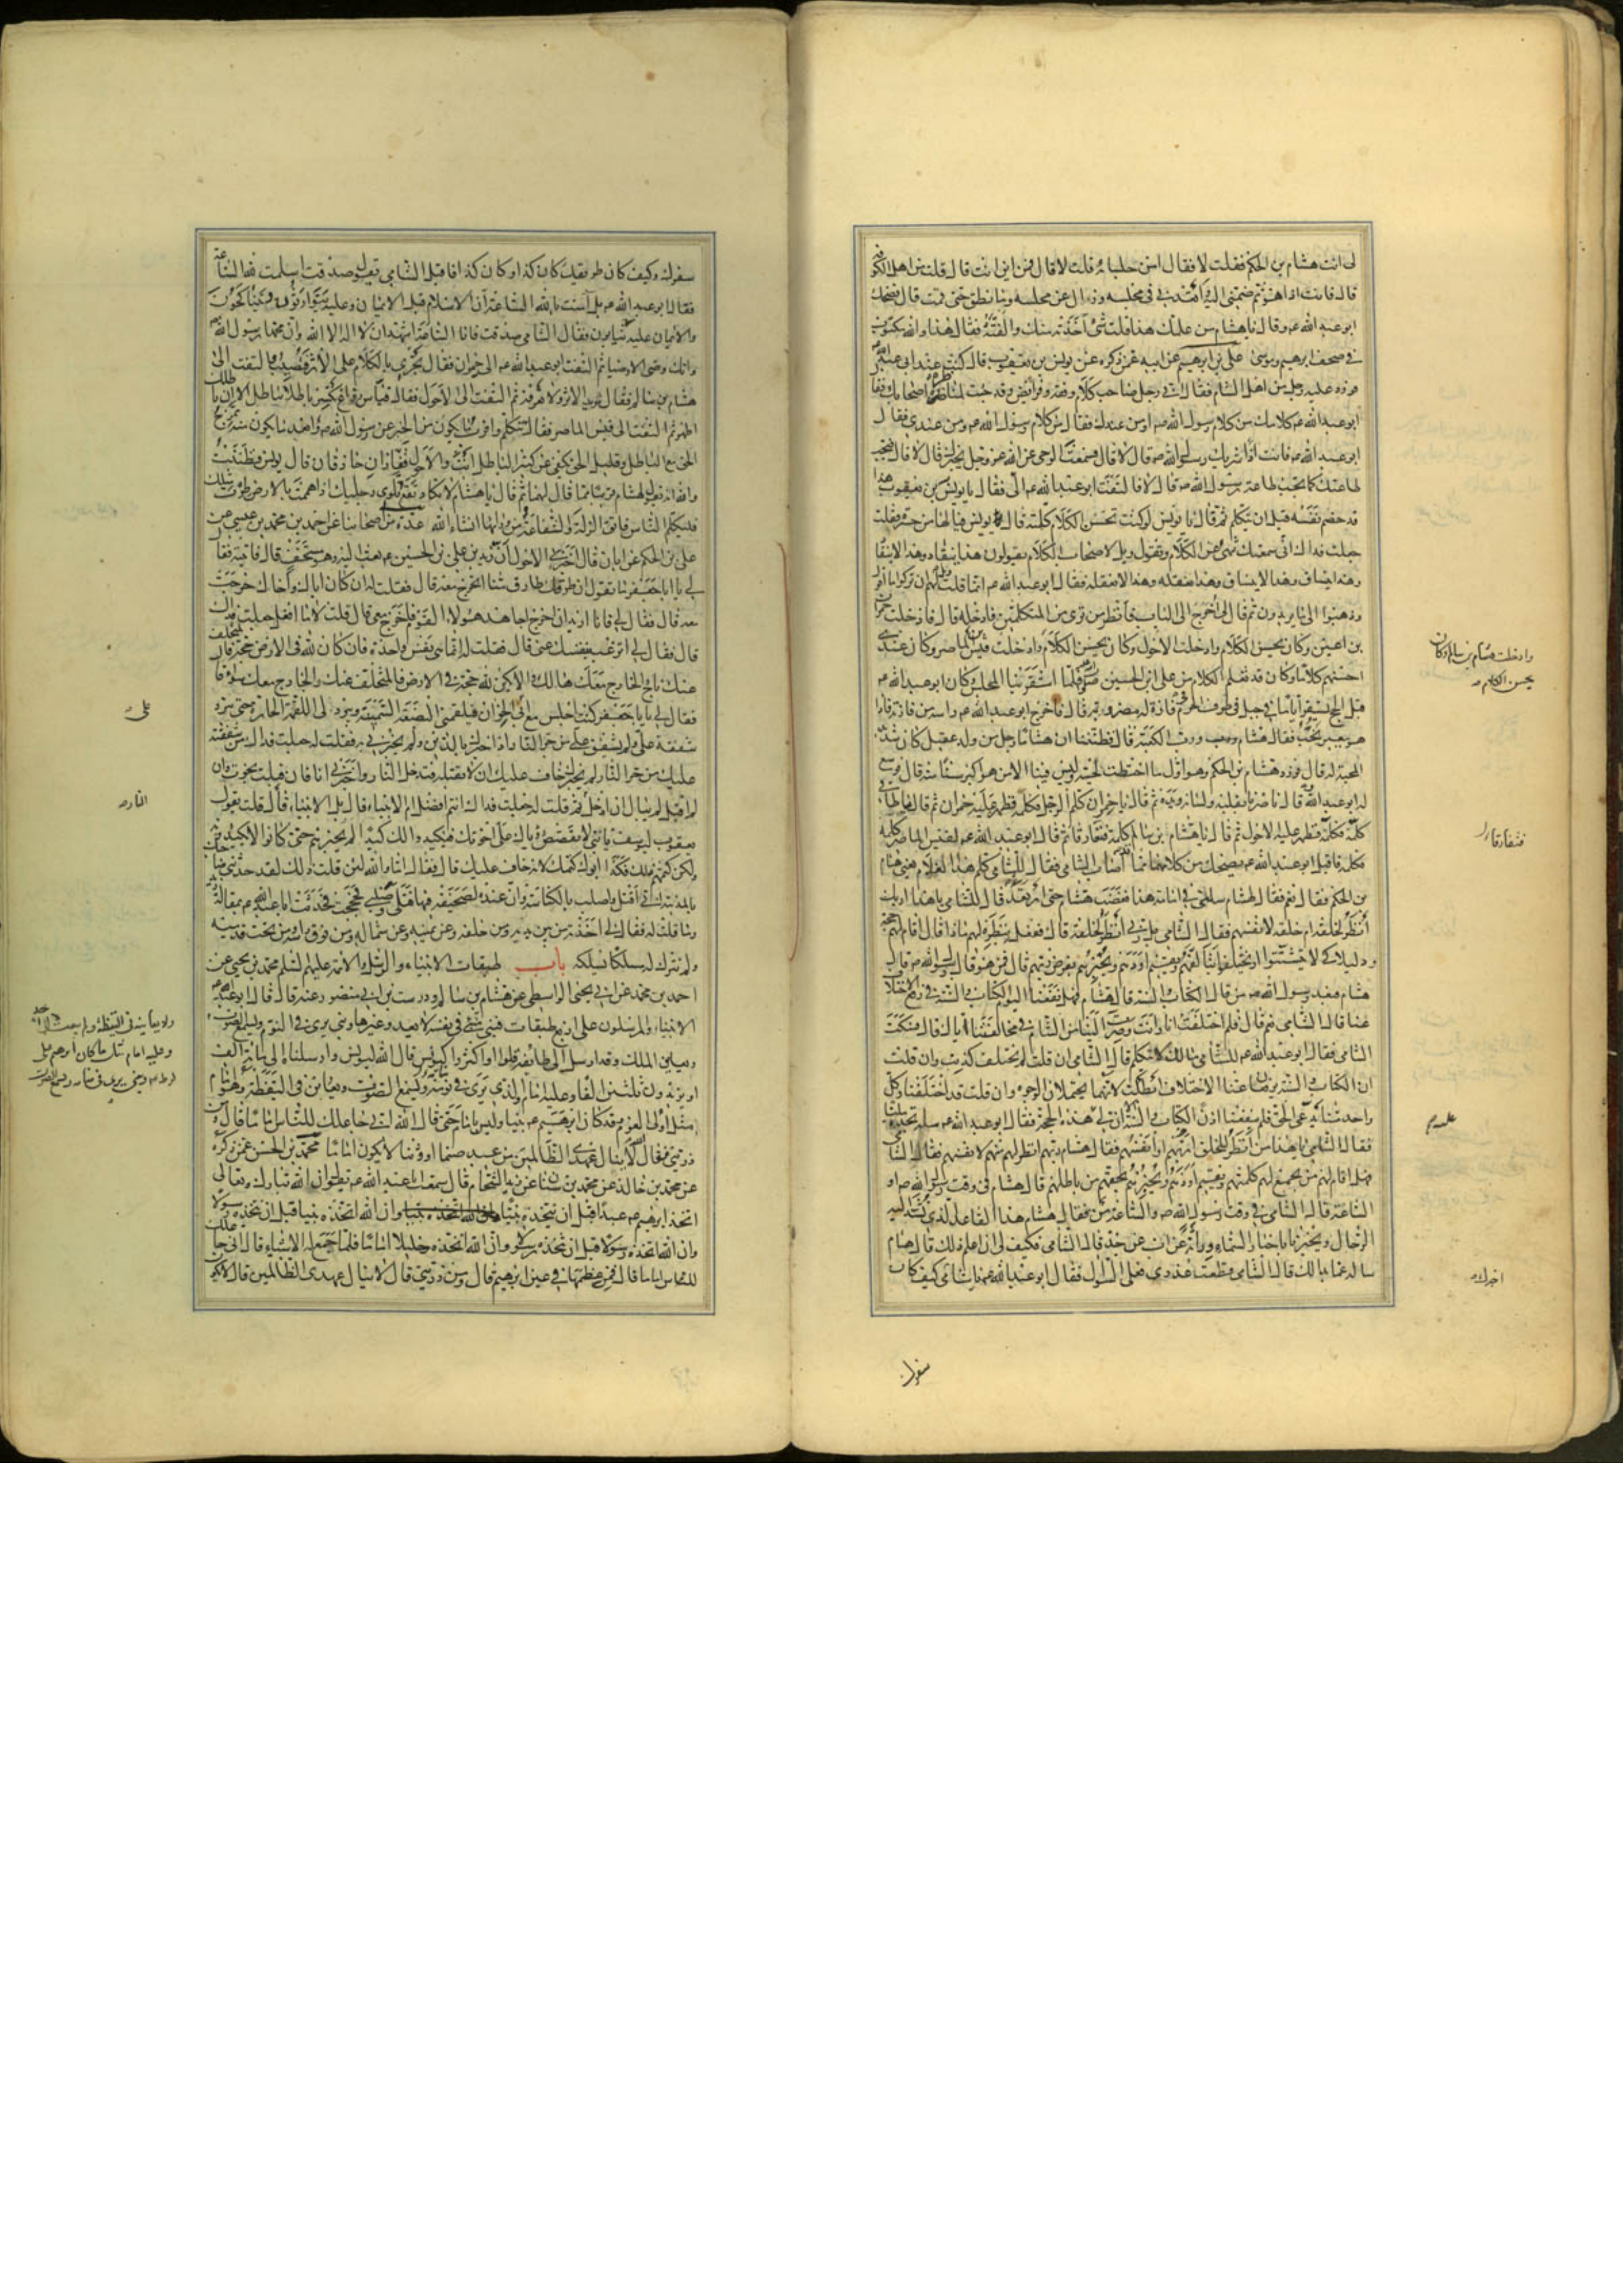 لى انت هشام بن الحكم فقلت لا فقال امن جلسائه قلت لا قال فمن اين انت قال قلت من اهل الكوفة
قال فانت اذا هو ثم ضمنى اليه واقعدنى فى مجلسه وزال عن مجلسه وما نطق حتى قمت قال فضحك
ابو عبد الله ع وقال يا هشام من علمك هذا قلت شئ اخذته منك والفته فقال هذا والله مكتوب
فى صحف ابرهيم وموسى على بن ابرهيم عن ابيه عمن ذكره عن يونس بن يعقوب قال كنت عند ابى عبد الله
فورد عليه رجل من اهل الشام فقال انى رجل صاحب كلام وفقه وفرائض وقد جئت لمناظرة اصحابك فقال
ابو عبد الله ع كلامك من كلام رسول الله ص او من عندك فقال من كلام رسول الله ص ومن عندى فقال
ابو عبد الله ع فانت اذا شريك رسول الله ص قال لا قال فسمعت الوحى عن الله عز وجل يخبرك قال لا قال فتجب
طاعتك كما تجب طاعة رسول الله ص قال لا فالتفت ابو عبد الله ع الى فقال يا يونس بن يعقوب هذا
قد خصم نفسه قبل ان يتكلم ثم قال يا يونس لو كنت تحسن الكلام كلمته قال يونس فيا لها من حسرة فقلت
جعلت فداك انى سمعتك تنهى عن الكلام وتقول ويل لاصحاب الكلام يقولون هذا ينقاد وهذا لا ينقاد
وهذا ينساق وهذا لا ينساق وهذا نعقله وهذا لا نعقله فقال ابو عبد الله ع انما قلت ويل لهم ان تركوا ما اقول
وذهبوا الى ما يريدون ثم قال لى اخرج الى الباب فانظر من ترى من المتكلمين فادخله قال فادخلت حمران
بن اعين وكان يحسن الكلام وادخلت الاحول وكان يحسن الكلام وادخلت قيس الماصر وكان عندى
احسنهم كلاما وكان قد تعلم الكلام من على ابن الحسين ع فلما استقر بنا المجلس وكان ابو عبد الله ع
قبل الحج يستقر اياما فى جبل فى طرف الحرم فى فازة له مضروبة قال فاخرج ابو عبد الله ع راسه من فازته فاذا
هو ببعير يخب فقال هشام ورب الكعبة قال فظننا ان هشاما رجل من ولد عقيل كان شديد
المحبة له قال فورد هشام بن الحكم وهو اول ما اختطت لحيته وليس فينا الا من هو اكبر سنا منه قال فوسع
له ابو عبد الله قال ناصرنا بقلبه ولسانه ويده ثم قال يا حمران كلم الرجل فكلمه فظهر عليه حمران ثم قال يا طاقى
كلمه فكلمه فظهر عليه الاحول ثم قال يا هشام بن سالم كلمه فتعارفا ثم قال ابو عبد الله ع لقيس الماصر كلمه
فكلمه فاقبل ابو عبد الله ع يضحك من كلامهما مما اصاب الشامى فقال للشامى كلم هذا الغلام يعنى هشام
بن الحكم فقال نعم فقال لهشام سلنى فى امامة هذا فغضب هشام حتى ارتعد ثم قال للشامى يا هذا اربك
انظر لخلقه ام خلقه لانفسهم فقال الشامى بل ربى انظر لخلقه قال ففعل بنظره لهم ماذا قال اقام لهم حجة
ودليلا كى لا يتشتتوا او يختلفوا يتالفهم ويقيم اودهم ويخبرهم بفرض ربهم قال فمن هو قال رسول الله ص قال
هشام فبعد رسول الله ص من قال الكتاب والسنة قال هشام فهل نفعنا اليوم الكتاب والسنة فى رفع الاختلاف
عنا قال الشامى نعم قال فلم اختلفت انا وانت وصرت الينا من الشام فى مخالفتنا اياك قال فسكت
الشامى فقال ابو عبد الله ع للشامى مالك لا تتكلم قال الشامى ان قلت لم نختلف كذبت وان قلت
ان الكتاب والسنة يرفعان عنا الاختلاف ابطلت لانهما يحتملان الوجوه وان قلت قد اختلفنا وكل
واحد منا يدعى الحق فلم ينفعنا اذن الكتاب والسنة الا ان لى هذه الحجة فقال ابو عبد الله ع سله تجده مليا
فقال الشامى يا هذا من انظر للخلق اربهم او انفسهم فقال هشام ربهم انظر لهم منهم لانفسهم فقال الشامى
فهل اقام لهم من يجمع لهم كلمتهم ويقيم اودهم ويخبرهم بحقهم من باطلهم قال هشام فى وقت رسول الله ص او
الساعة قال الشامى فى وقت رسول الله ص والساعة من فقال هشام هذا القاعد الذى تشد اليه
الرحال ويخبرنا باخبار السماء وراثة عن اب عن جد قال الشامى فكيف لى ان اعلم ذلك قال هشام
سله عما بدا لك قال الشامى قطعت عذرى فعلى السؤال فقال ابو عبد الله ع يا شامى كيف كان
وادخلت هشام بن سالم وكان
يحسن الكلام
فتعارقا
عليه
اخبرك
سفرك
سفرك وكيف كان طريقك كان كذا وكان كذا فاقبل الشامى يقول صدقت اسلمت لله الساعة
فقال ابو عبد الله ع بل آمنت بالله الساعة ان الاسلام قبل الايمان وعليه يتوارثون ويتناكحون
والايمان عليه يثابون فقال الشامى صدقت فانا الساعة اشهد ان لا اله الا الله وان محمدا رسول الله
وانك وصى الاوصياء ثم التفت ابو عبد الله ع الى حمران فقال تجرى بالكلام على الاثر فتصيب والتفت الى
هشام بن سالم فقال تريد الاثر ولا تعرفه ثم التفت الى الاحول فقال قياس رواغ تكسر باطلا بباطل الا ان باطلك
اظهر ثم التفت الى قيس الماصر فقال تتكلم واقرب ما يكون من الخبر عن رسول الله ص وابعد ما يكون منه تمزج
الحق مع الباطل وقليل الحق يكفى عن كثير الباطل انت والاحول قفازان حاذقان قال يونس فظننت
والله انه يقول لهشام قريبا مما قال لهما ثم قال يا هشام لا تكاد تقع تلوى رجليك اذا هممت بالارض طرت مثلك
فليكلم الناس فاتق الزلة والشفاعة من ورائها انشاء الله عدة من اصحابنا عن احمد بن محمد بن عيسى عن
على بن الحكم عن ابان قال اخبرنى الاحول ان زيد بن على بن الحسين ع بعث اليه وهو مستخف قال فاتيته فقال
لى يا ابا جعفر ما تقول ان طرقك طارق منا اتخرج معه قال فقلت له ان كان اباك او اخاك خرجت
معه قال فقال لى فانا اريد ان اخرج اجاهد هؤلاء القوم فاخرج معى قال قلت لا ما افعل جعلت فداك
قال فقال لى اترغب بنفسك عنى قال فقلت له انما هى نفس واحدة فان كان لله فى الارض حجة فالمتخلف
عنك ناج والخارج معك هالك وان لا تكن لله حجة فى الارض فالمتخلف عنك والخارج معك سواء قال
فقال لى يا ابا جعفر كنت اجلس مع ابى على الخوان فيلقمنى البضعة السمينة ويبرد لى اللقمة الحارة حتى تبرد
شفقة على ولم يشفق على من حر النار اذا اخبرك بالدين ولم يخبرنى به فقلت له جعلت فداك من شفقته
عليك من حر النار لم يخبرك خاف عليك ان لا تقبله فتدخل النار واخبرنى انا فان قبلت نجوت وان
لم اقبل لم يبال ان ادخل ثم قلت له جعلت فداك انتم افضل ام الانبياء قال بل الانبياء قال قلت يقول
يعقوب ليوسف يا بنى لا تقصص رؤياك على اخوتك فيكيدوا لك كيدا لم يخبرهم حتى كانوا لا يكيدونه
ولكن كتمهم ذلك فكذا ابوك كتمك لانه خاف عليك قال فقال اما والله لئن قلت ذلك لقد حدثنى صاحبك
بالمدينة انى اقتل واصلب بالكناسة وان عنده لصحيفة فيها قتلى وصلبى فحججت فحدثت ابا عبد الله ع بمقالة زيد
وما قلت له فقال لى اخذته من بين يديه ومن خلفه وعن يمينه وعن شماله ومن فوق راسه ومن تحت قدميه
ولم تترك له مسلكا يسلكه باب طبقات الانبياء والرسل والائمة عليهم السلم محمد بن يحيى عن
احمد بن محمد عن ابى يحيى الواسطى عن هشام بن سالم ودرست بن ابى منصور وعنه قال قال ابو عبد الله
الانبياء والمرسلون على اربع طبقات فنبى منبئ فى نفسه لا يعدو غيرها ونبى يرى فى النوم ويسمع الصوت
ويعاين الملك وقد ارسل الى طائفة قلوا او كثروا كيونس قال الله ليونس وارسلناه الى مائة الف
او يزيدون ثلثين الفا وعليه امام والذى يرى فى نومه ويسمع الصوت ويعاين فى اليقظة وهو امام
مثل اولى العزم وقد كان ابرهيم ع نبيا وليس بامام حتى قال الله انى جاعلك للناس اماما قال ومن
ذريتى فقال الله لا ينال عهدى الظالمين من عبد صنما او وثنا لا يكون اماما محمد بن الحسن عمن ذكره
عن محمد بن خالد عن محمد بن سنان عن زيد الشحام قال سمعت ابا عبد الله ع يقول ان الله تبارك وتعالى
اتخذ ابرهيم ع عبدا قبل ان يتخذه نبيا وان الله اتخذه نبيا قبل ان يتخذه رسولا
وان الله اتخذه رسولا قبل ان يتخذه خليلا وان الله اتخذه خليلا قبل ان يتخذه اماما فلما جمع له الاشياء قال انى جاعلك
للناس اماما قال فمن عظمها فى عين ابرهيم قال ومن ذريتى قال لا ينال عهدى الظالمين قال لا يكون
على
النار
ولا يعاينه فى اليقظة ولم يبعث الى احد
وعليه امام مثل ما كان ابرهيم على
لوط ع ونبى يرى فى منامه ويسمع الصوت